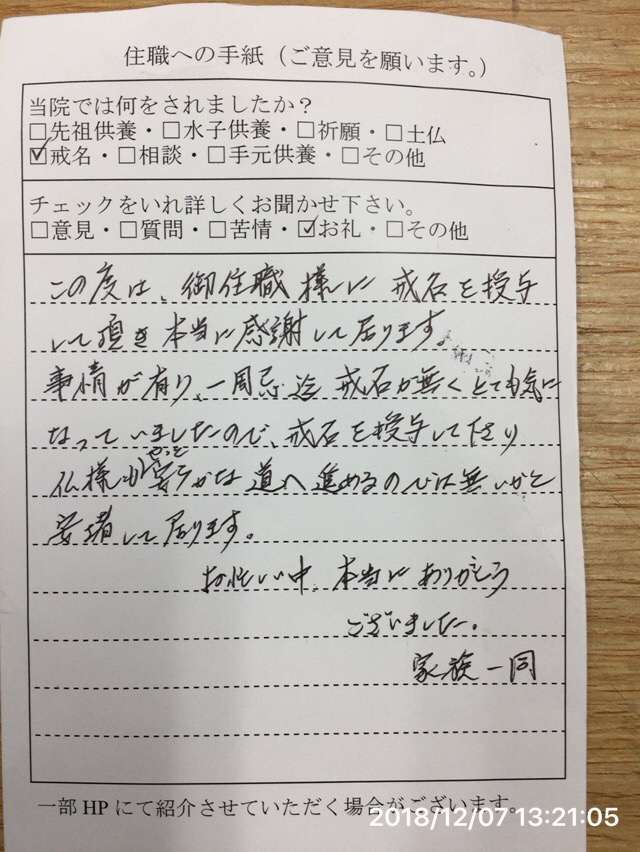 住職への手紙（ご意見を願います。）
当院では何をされましたか？
□先祖供養・□水子供養・□祈願・□土仏
☑戒名・□相談・□手元供養・□その他
チェックをいれ詳しくお聞かせ下さい。
□意見・□質問・□苦情・☑お礼・□その他
この度は、御住職様に戒名を授与
して頂き本当に感謝して居ります。
事情が有り、一周忌迄戒名が無くとても気に
なっていましたので、戒名を授与して下さり
やっと
仏様が安らかな道へ進めるのでは無いかと
安堵して居ります。
お忙しい中、本当にありがとう
ございました。
家族一同
一部HPにて紹介させていただく場合がございます。
2018/12/07 13:21:05